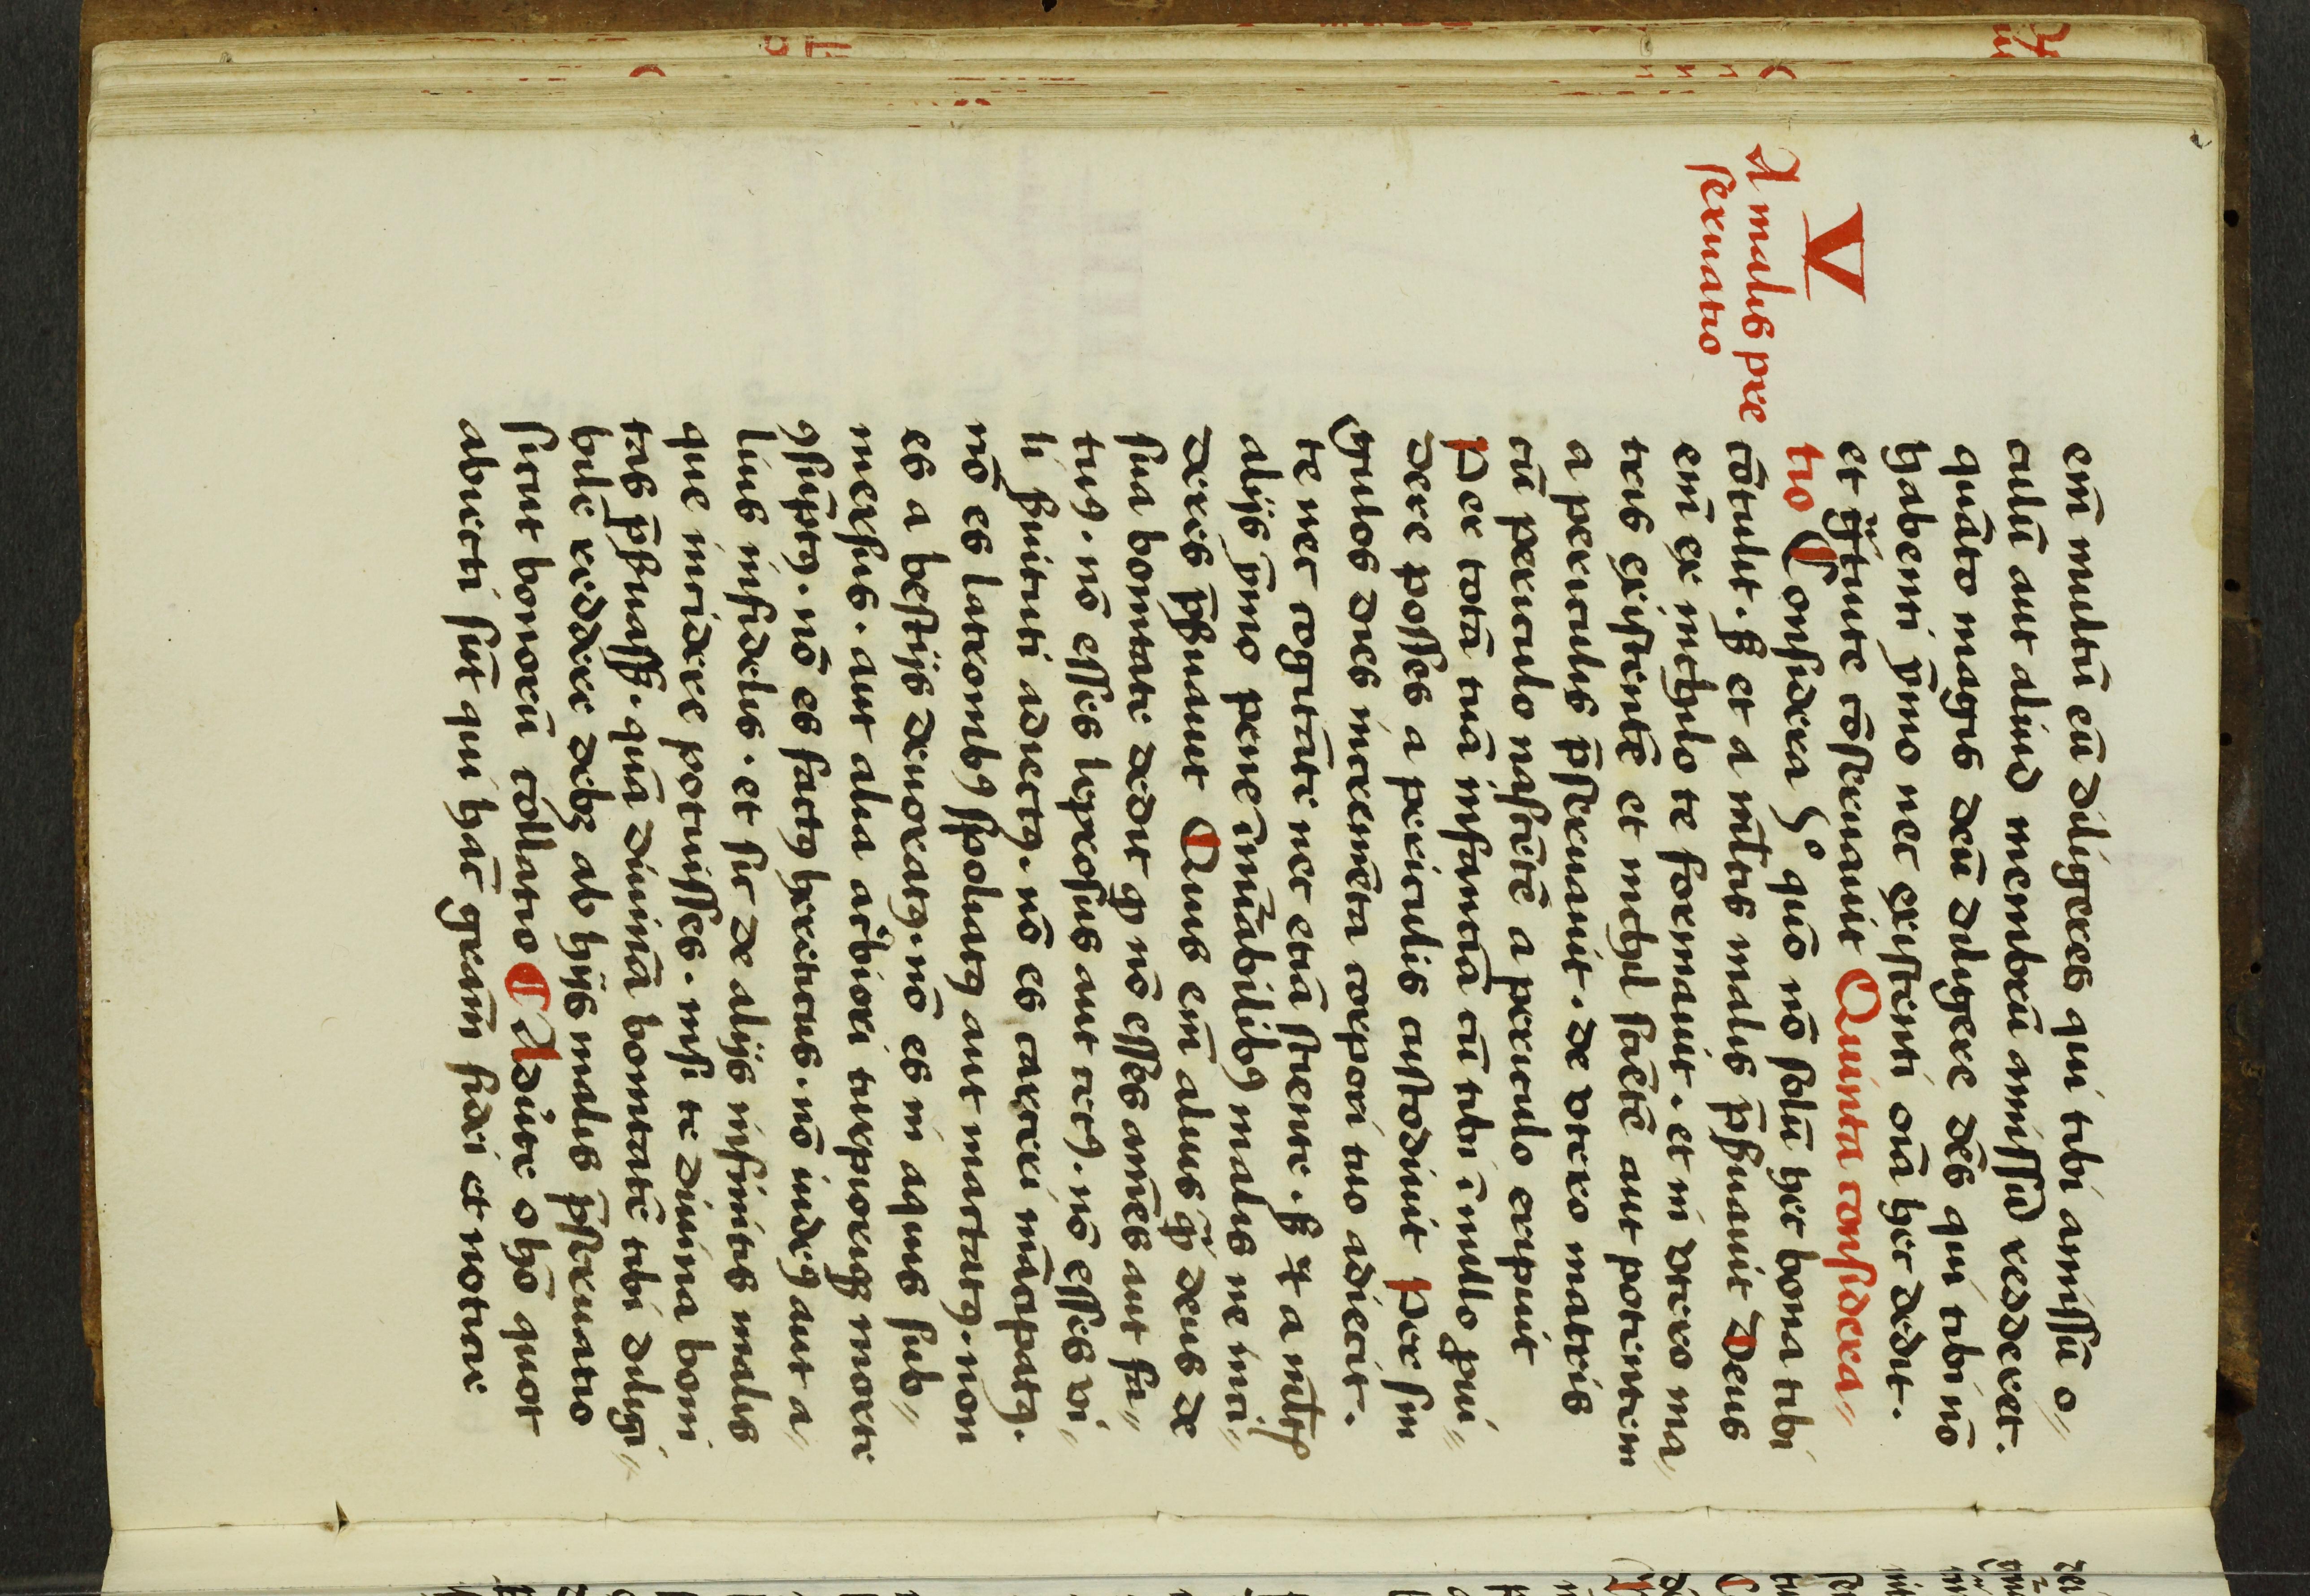 V
A malis pre
seruatio
em̄ multū eū diligeres qui tibi amissū o„
culū aut aliud membrū amissū redderet.
quāto magis deū diligere deƀs qui tibi nō
habenti ymo nec existenti oīa hec dedit.
et gͣtuite cōseruauit Quinta considera„
tio Considera hº quō nō solū hec bona tibi
cōtulit. sꝫ et a ml̄tis malis p̄ẜuauit Deus
em̄ ex nichilo te formauit. et in vtero ma„
tris existentē et nichil sciētē aut potentem
a periculis p̄seruauit. de vtero matris
cū periculo nascētē a periculo eripuit
Per totā tuā infanciā cū tibi ī nullo p̱ui„
dere posses a periculis custodiuit Per sin
gulos dies incremēta corpori tuo adiecit.
te nec cogitāte nec etiā sciente. sꝫ ⁊ a ml̄tis
alijs ymo pene īnūabilibꝰ malis ne inci„
deres p̄ẜuauit Quis em̄ alius qͣ deus de
sua bonitate dedit ꝙ nō esses amēs aut fa„
tuꝰ. nō esses leprosus aut cecꝰ. nō esses vi„
li ẜuituti adiectꝰ. nō es carceri mācipatꝰ.
nō es latronibꝰ spoliatꝰ aut mactatꝰ. non
es a bestijs deuoratꝰ. nō es in aquis sub„
mersus. aut alia acͥbiori turpioriqꝫ morte
ꝯsūptꝰ. nō es factꝰ hereticus. nō iudeꝰ aut a„
lius infidelis. et sic de alijs infinitis malis
que incidere potuisses. nisi te diuina boni
tas p̄ẜuasꝫ. quā diuinā bonitatē tibi diligi„
bilē reddere debꝫ ab hijs malis p̄seruatio
sicut bonorū collatio ¶ Adūte o hō quot
abiecti sūt qui hāc grām fidei et noticie